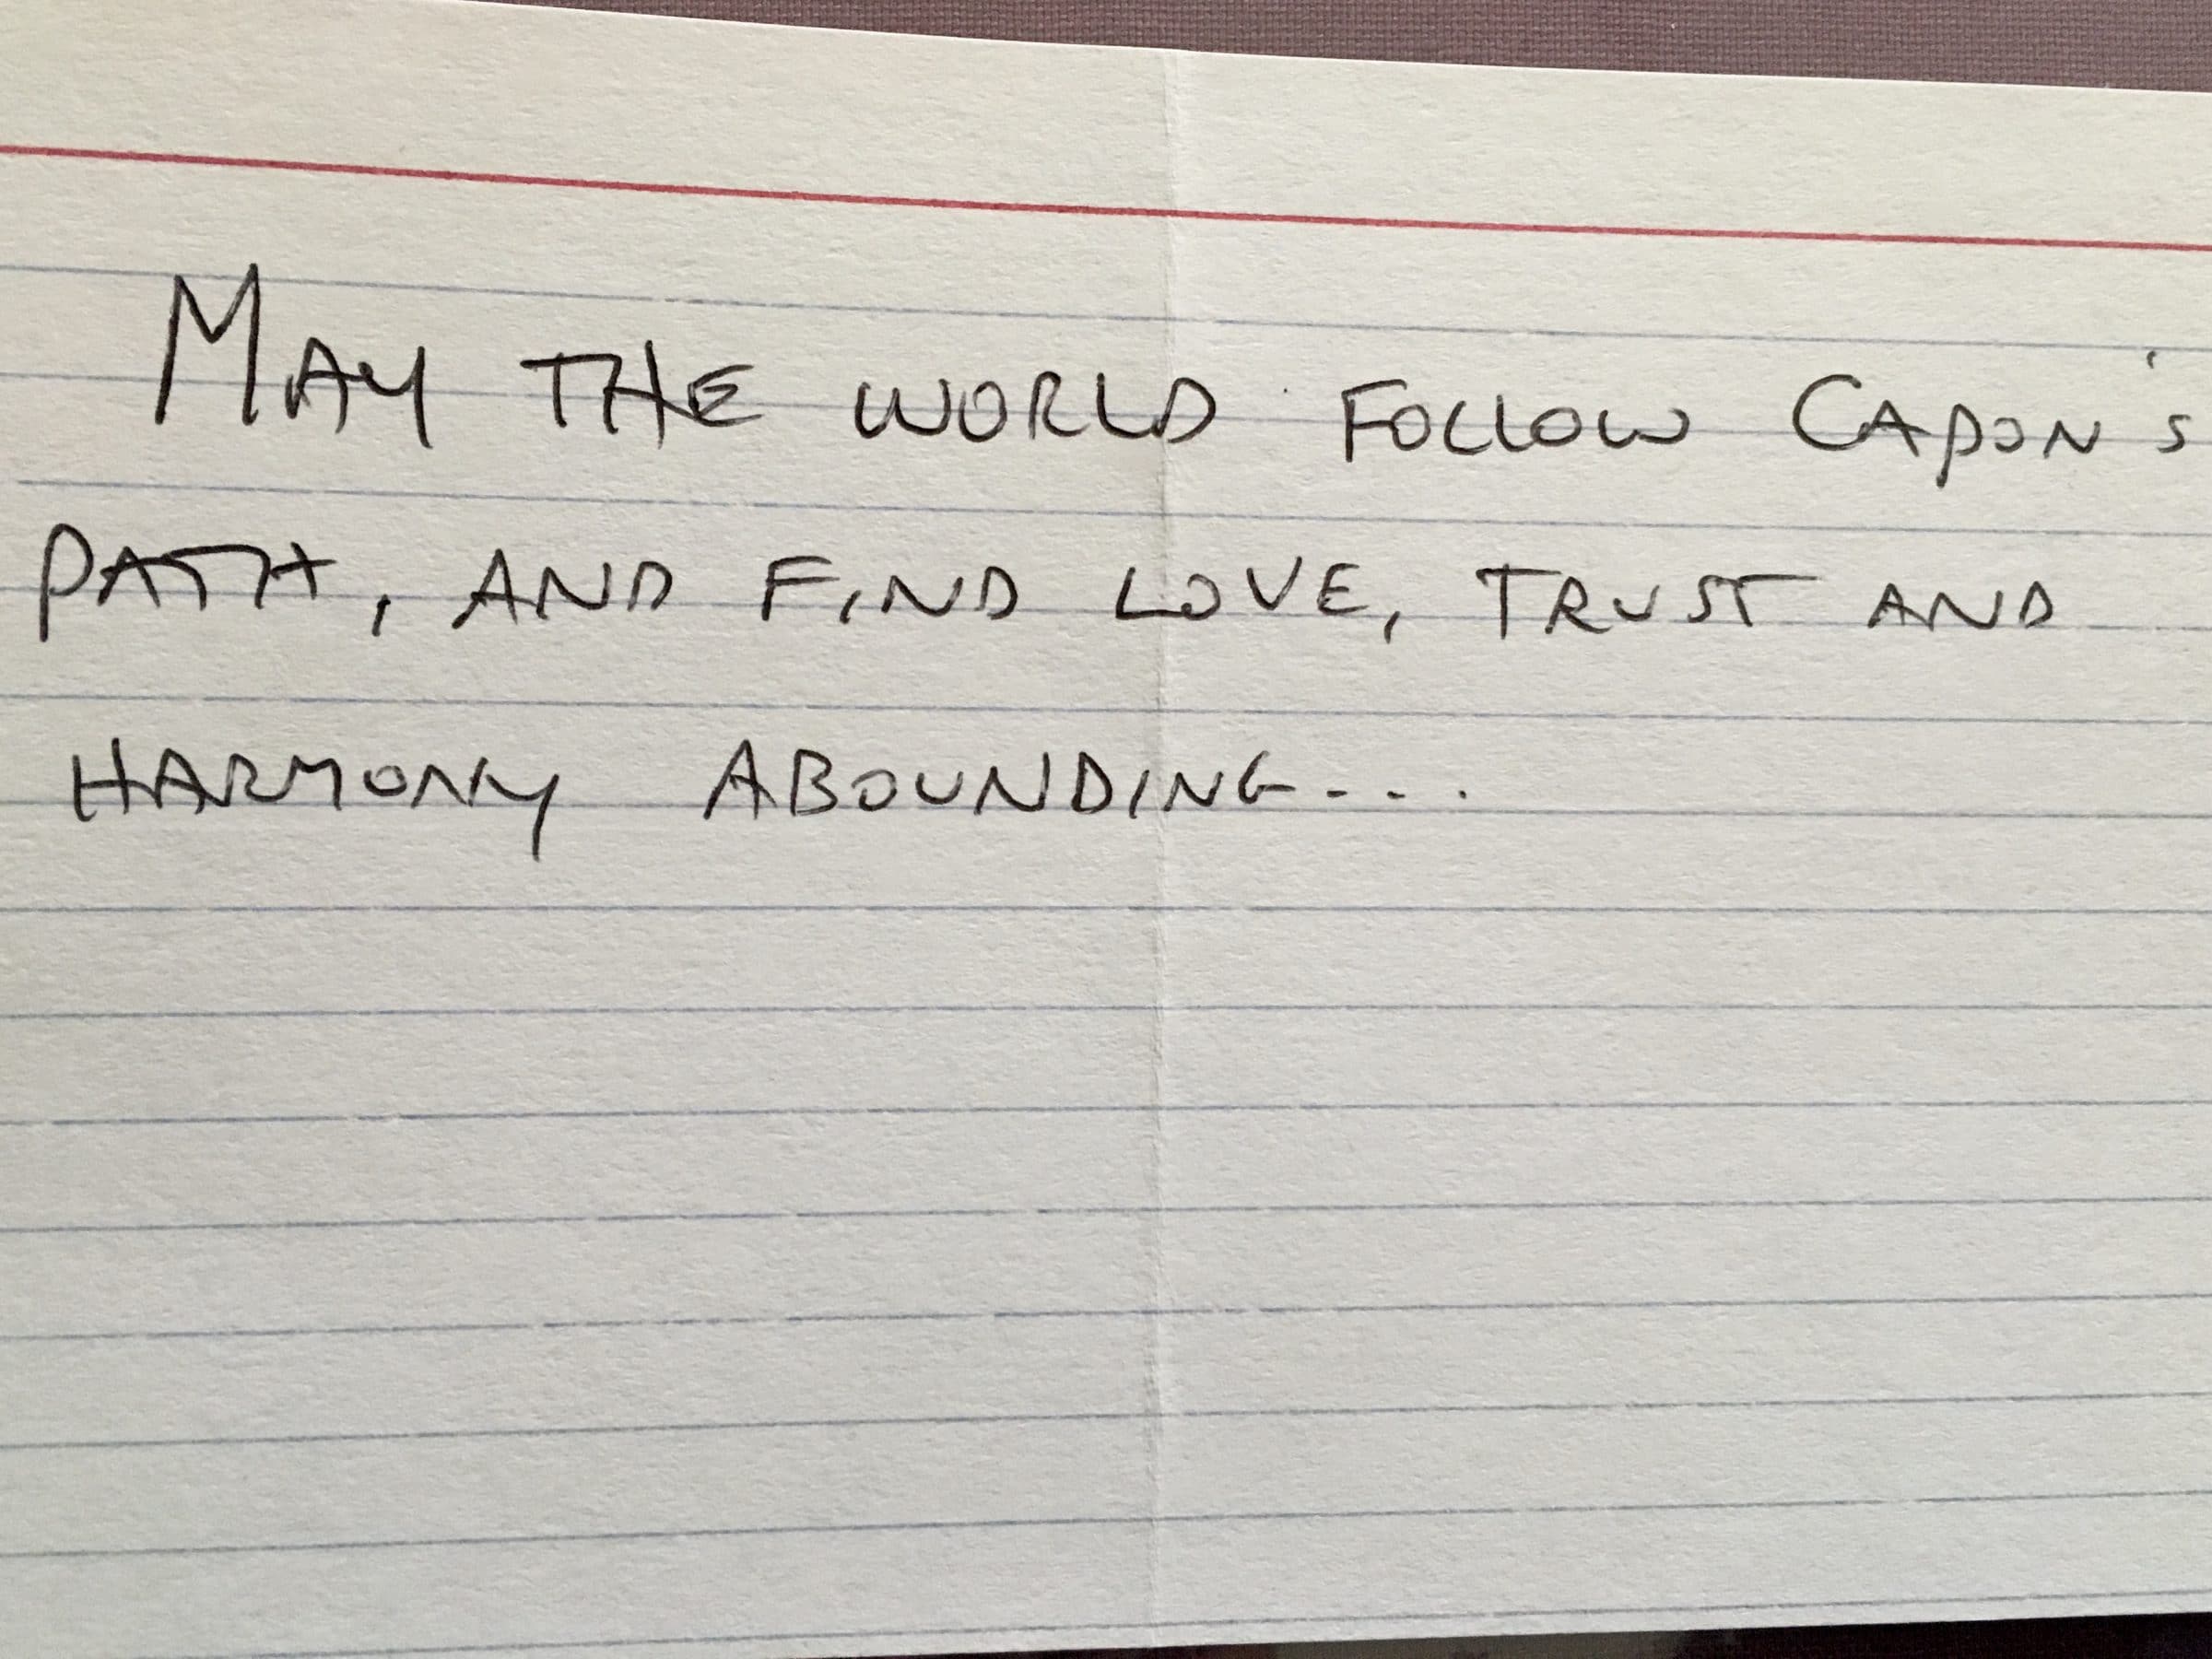 MAY THE WORLD FOLLOW CAPON'S
PATH, AND FIND LOVE, TRUST AND
HARMONY ABOUNDING...